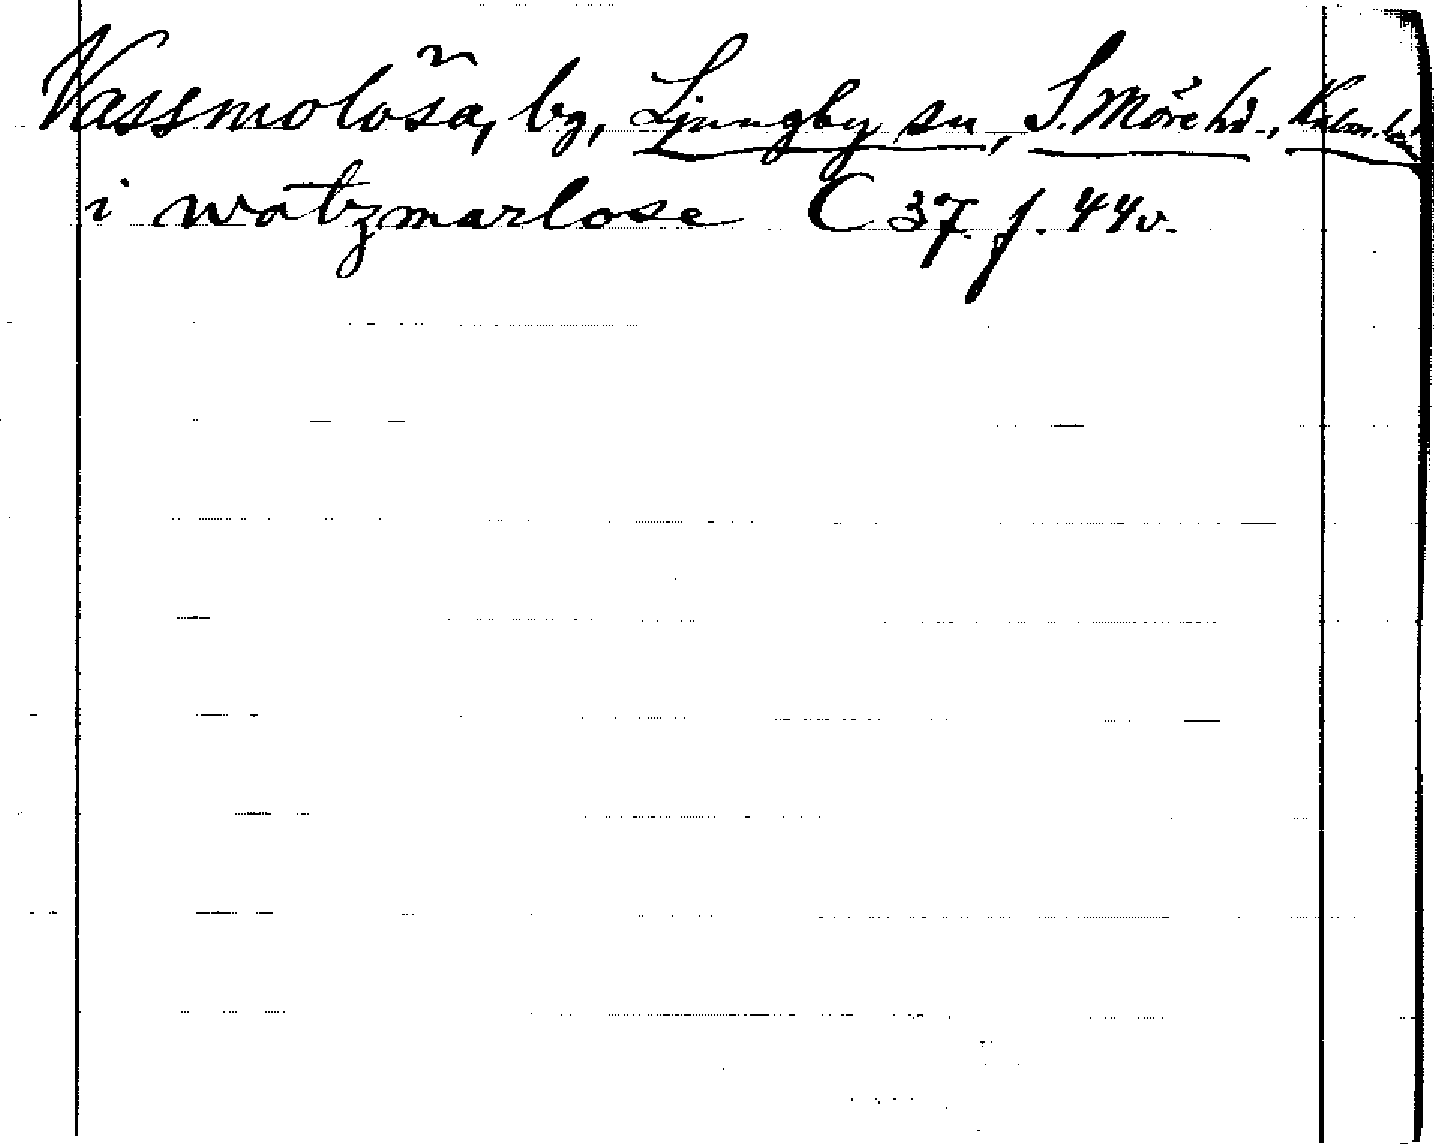 Vassmolösa, by, Ljungby sn, S. Möre hd., Kalm. län
i watzmarlose C 37. f. 44v.